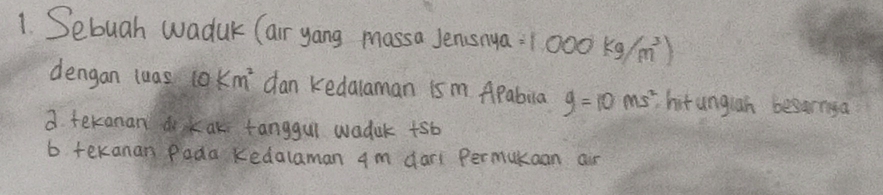 1. Sebuah waduk (air yang massa Jenisnya = 1.000 kg/m³)
dengan luas 10 Km² dan kedalaman 15 m Apabila g = 10 ms² hitunglah besarnya
a. tekanan di kaki tanggul waduk tsb
b tekanan Pada kedalaman 4 m dari Permukaan air